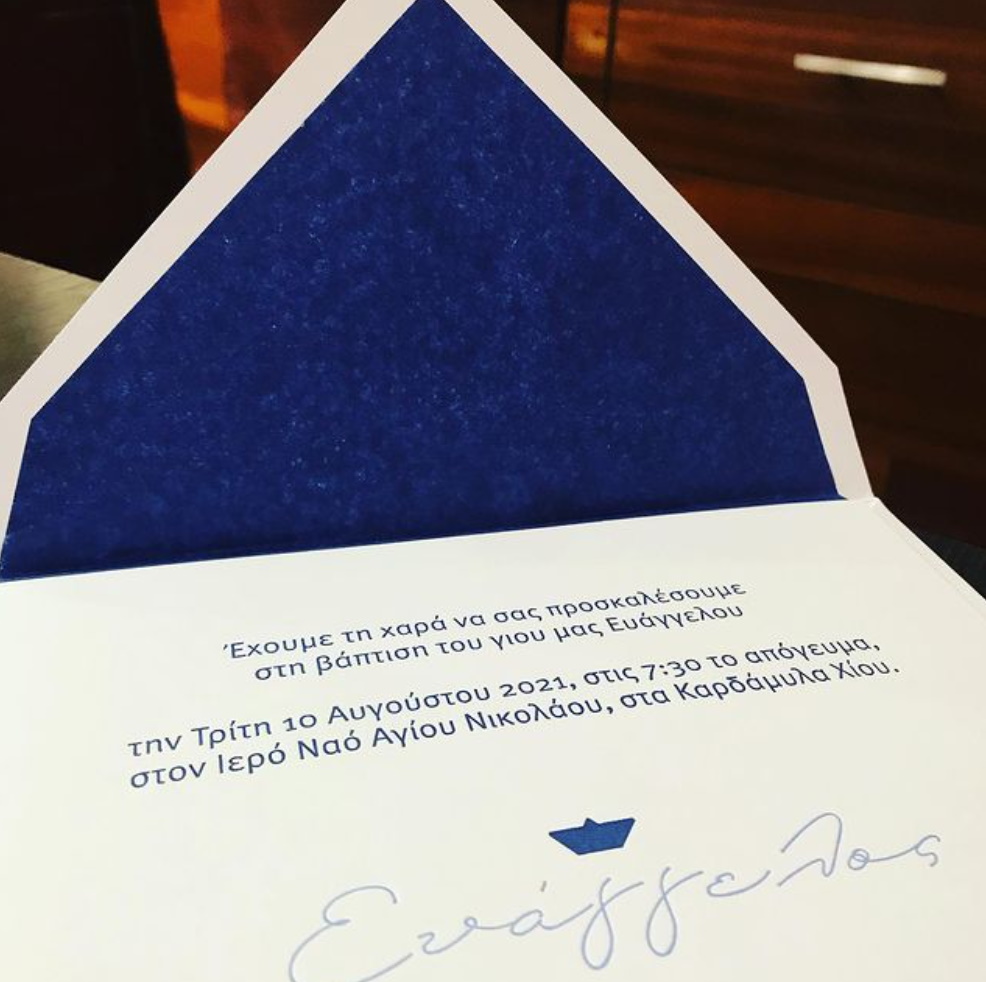 Έχουμε τη χαρά να σας προσκαλέσουμε
στη βάπτιση του γιου μας Ευάγγελου
την Τρίτη 10 Αυγούστου 2021, στις 7:30 το απόγευμα,
στον Ιερό Ναό Αγίου Νικολάου, στα Καρδάμυλα Χίου.
Ευάγγελος